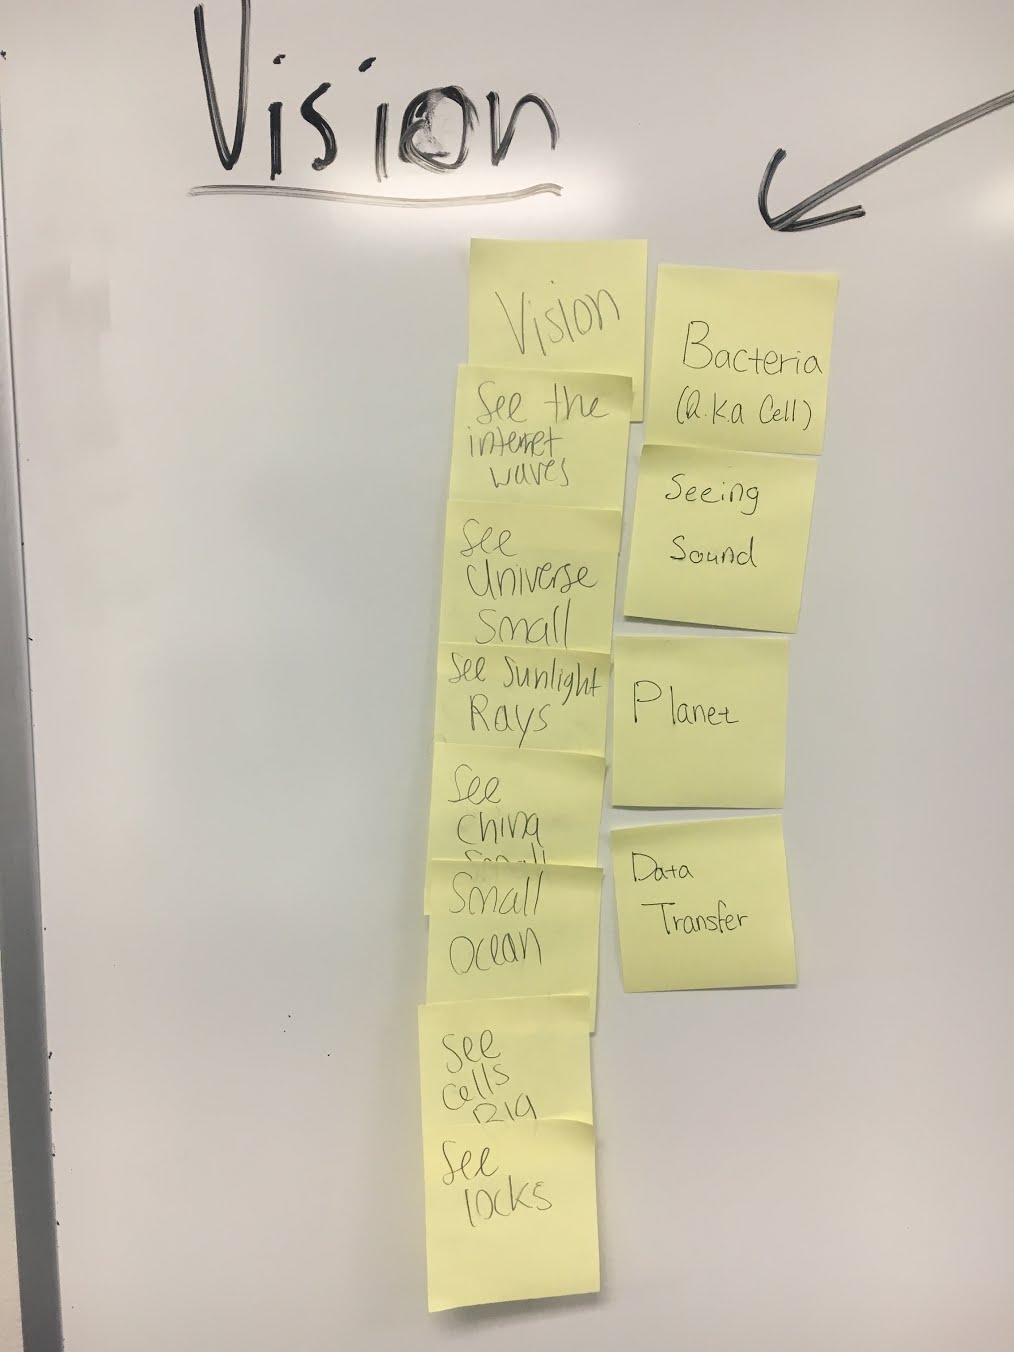 Vision
Vision
See the
internet
waves
See
Universe
Small
See Sunlight
Rays
See
China
Small
Small
Ocean
See
cells
Big
See
locks
Bacteria
(a.k.a Cell)
Seeing
Sound
Planet
Data
Transfer